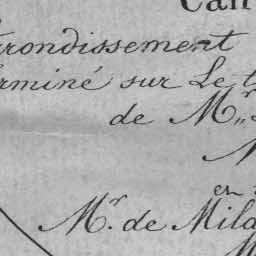 Can
rrondissement
erminé sur Le t
de Mr.
M
en
Mr. de Mila
M